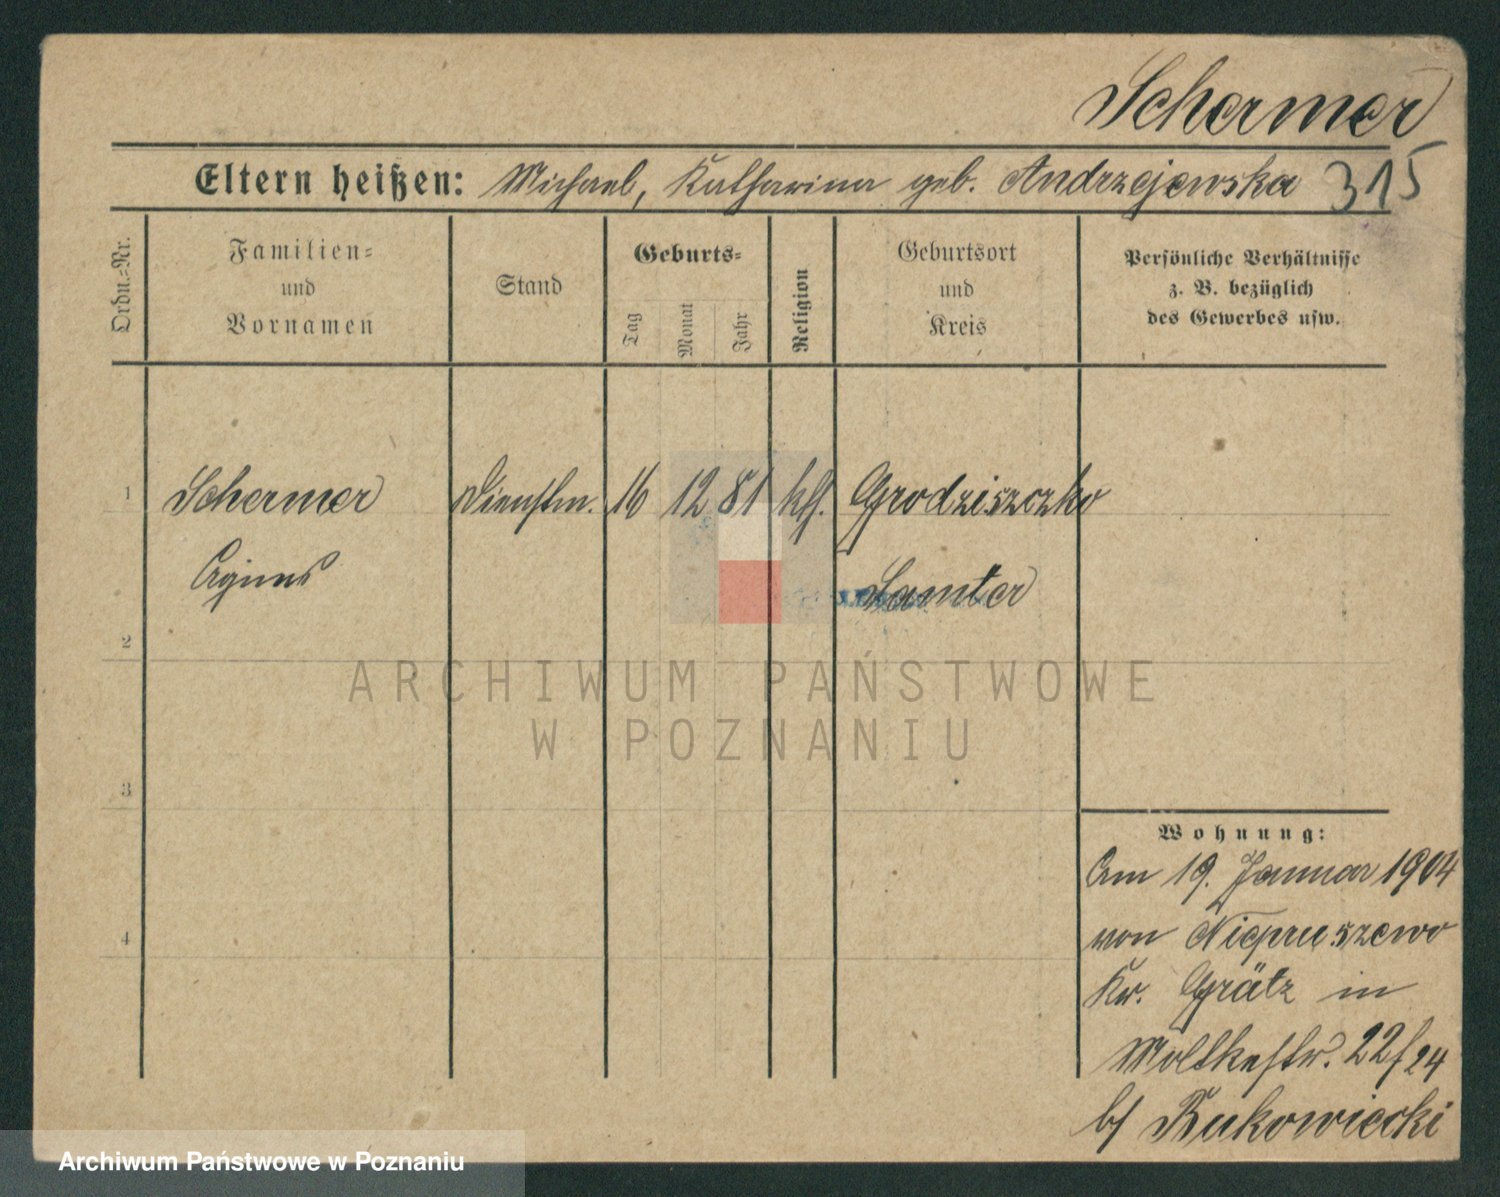 Schermer
Eltern heißen: Michael, Katharina geb. Andrzejewska 315
Ordn.-Nr.
Familien-
und
Vornamen
Stand
Geburts-
Tag
Monat
Jahr
Religion
Geburtsort
und
Kreis
Persönliche Verhältnisse
z. B. bezüglich
des Gewerbes usw.
1 Schermer Dienstm. 16 12 81 kth. Grodziszczko
Agnes Samter
2
ARCHIWUM PAŃSTWOWE
W POZNANIU
3
Wohnung:
Am 19. Januar 1904
von Niepruszewo
4
Kr. Grätz in
Moltkestr. 22/24
b/ Rukowiecki
Archiwum Państwowe w Poznaniu